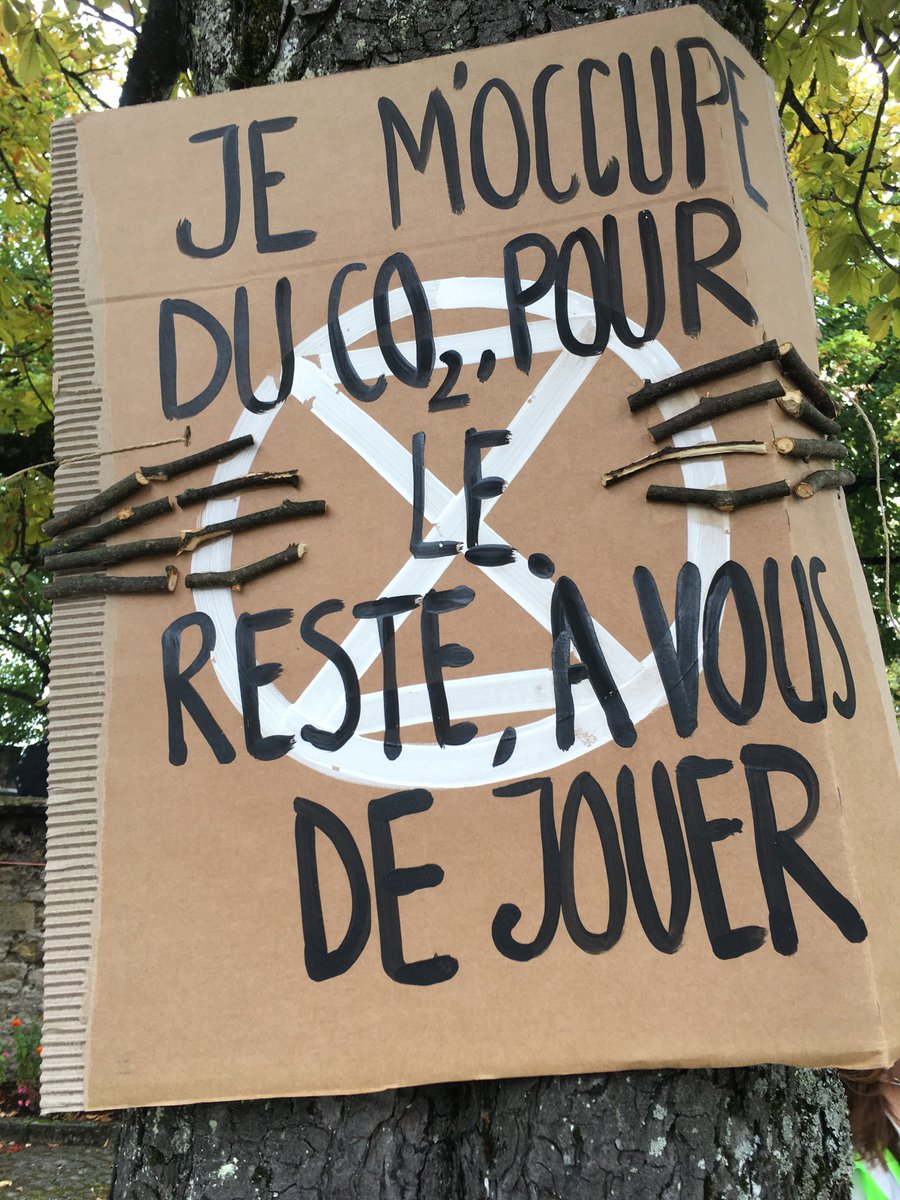 JE M'OCCUPE
DU CO₂, POUR
LE
RESTE, À VOUS
DE JOUER